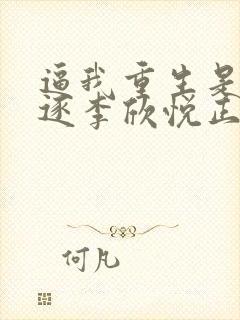 逼我重生是
逐李欣悦正
何凡